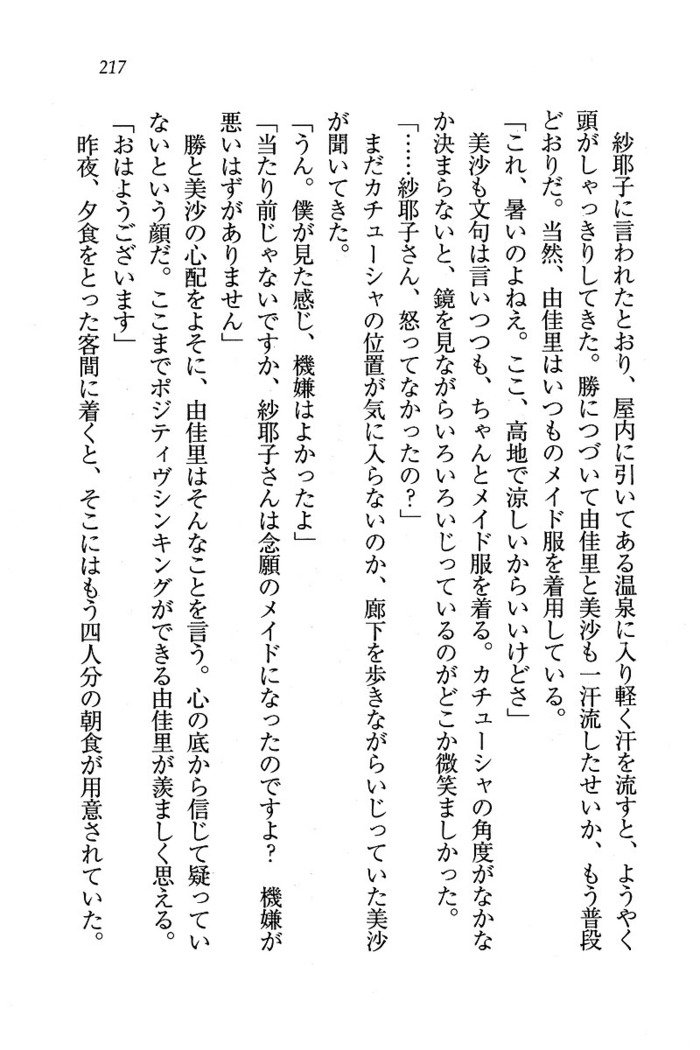 217
紗耶子に言われたとおり、屋内に引いてある温泉に入り軽く汗を流すと、ようやく
頭がしゃっきりしてきた。勝につづいて由佳里と美沙も一汗流したせいか、もう普段
どおりだ。当然、由佳里はいつものメイド服を着用している。
「これ、暑いのよねえ。ここ、高地で涼しいからいいけどさ」
美沙も文句は言いつつも、ちゃんとメイド服を着る。カチューシャの角度がなかな
か決まらないと、鏡を見ながらいろいろいじっているのがどこか微笑ましかった。
「……紗耶子さん、怒ってなかったの？」
まだカチューシャの位置が気に入らないのか、廊下を歩きながらいじっていた美沙
が聞いてきた。
「うん。僕が見た感じ、機嫌はよかったよ」
「当たり前じゃないですか、紗耶子さんは念願のメイドになったのですよ？　機嫌が
悪いはずがありません」
勝と美沙の心配をよそに、由佳里はそんなことを言う。心の底から信じて疑ってい
ないという顔だ。ここまでポジティヴシンキングができる由佳里が羨ましく思える。
「おはようございます」
昨夜、夕食をとった客間に着くと、そこにはもう四人分の朝食が用意されていた。